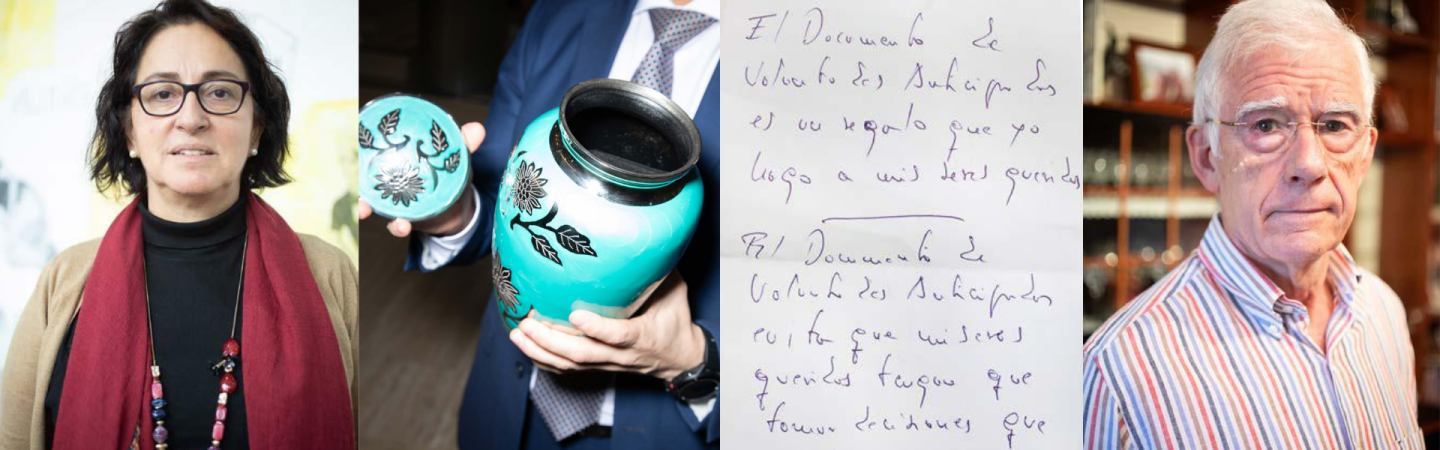 El Documento de
Voluntades Anticipadas
es un regalo que yo
hago a mis seres queridos
El Documento de
Voluntades Anticipadas
evita que mis seres
queridos tengan que
tomar decisiones que